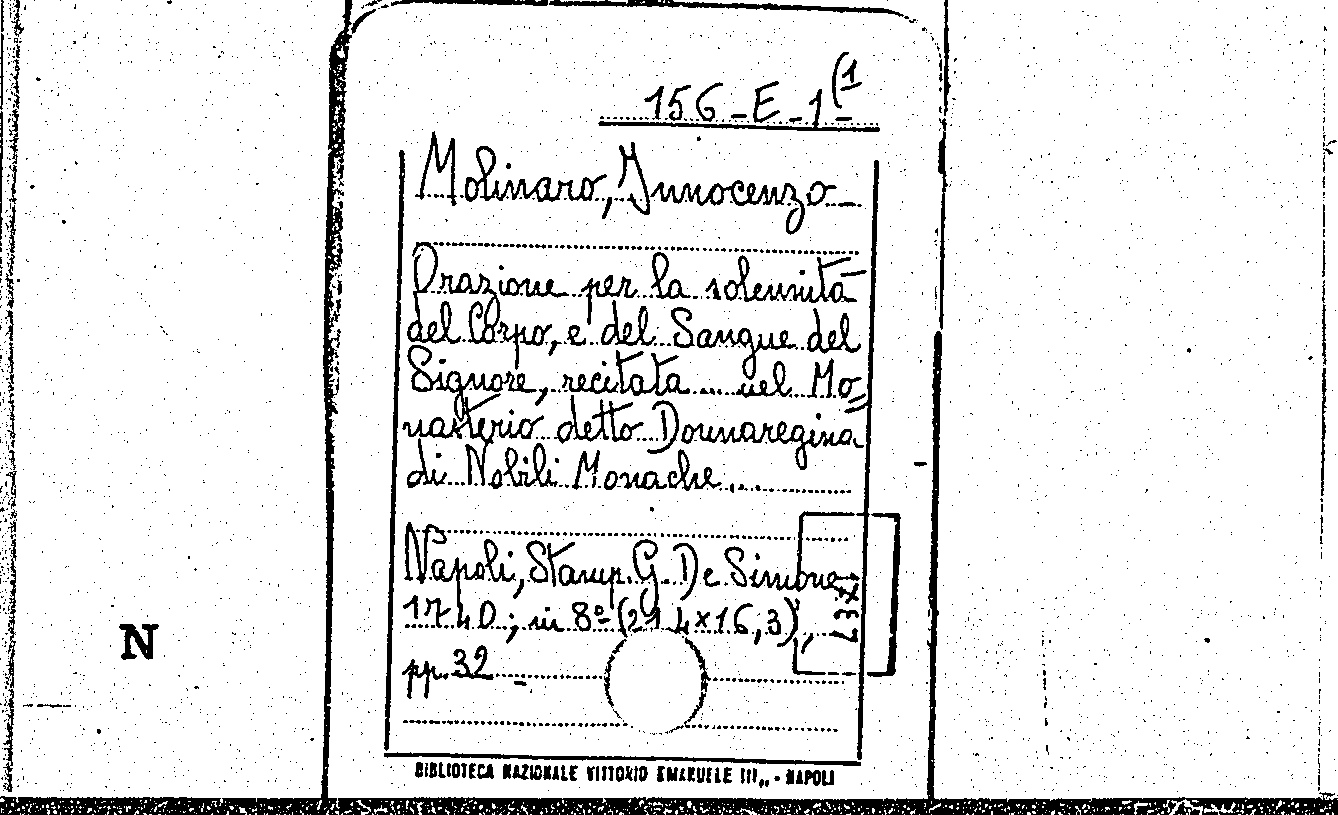 156-E-1(1
Molinaro, Innocenzo
Orazione per la solennità
del Corpo, e del Sangue del
Signore, recitata ... nel Mo=
nasterio detto Donnaregina
di Nobili Monache...
Napoli, Stamp. G. De Simone,
1740; in 8º (21,4x16,3),
pp. 32 -
N
BIBLIOTECA NAZIONALE VITTORIO EMANUELE III,, - NAPOLI